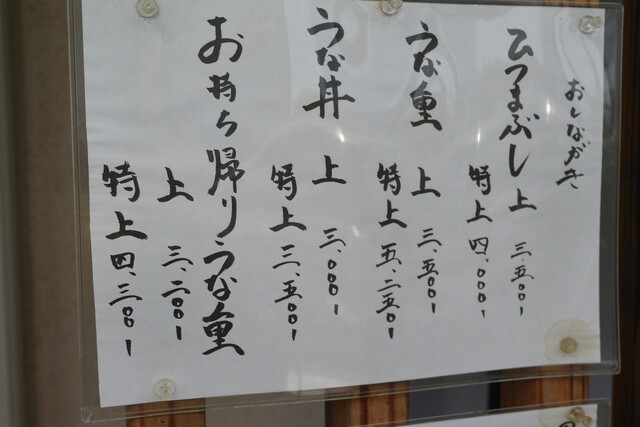 おしながき
ひつまぶし 上 三、五〇〇ー
特上 四、〇〇〇ー
うな重 上 三、五〇〇ー
特上 五、二五〇ー
うな丼 上 三、〇〇〇ー
特上 三、五〇〇ー
お持ち帰りうな重
上 三、二〇〇ー
特上 四、三〇〇ー